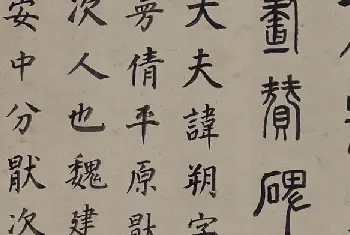 畫贊碑
大夫諱朔字
曼倩平原猒
次人也魏建
安中分猒次